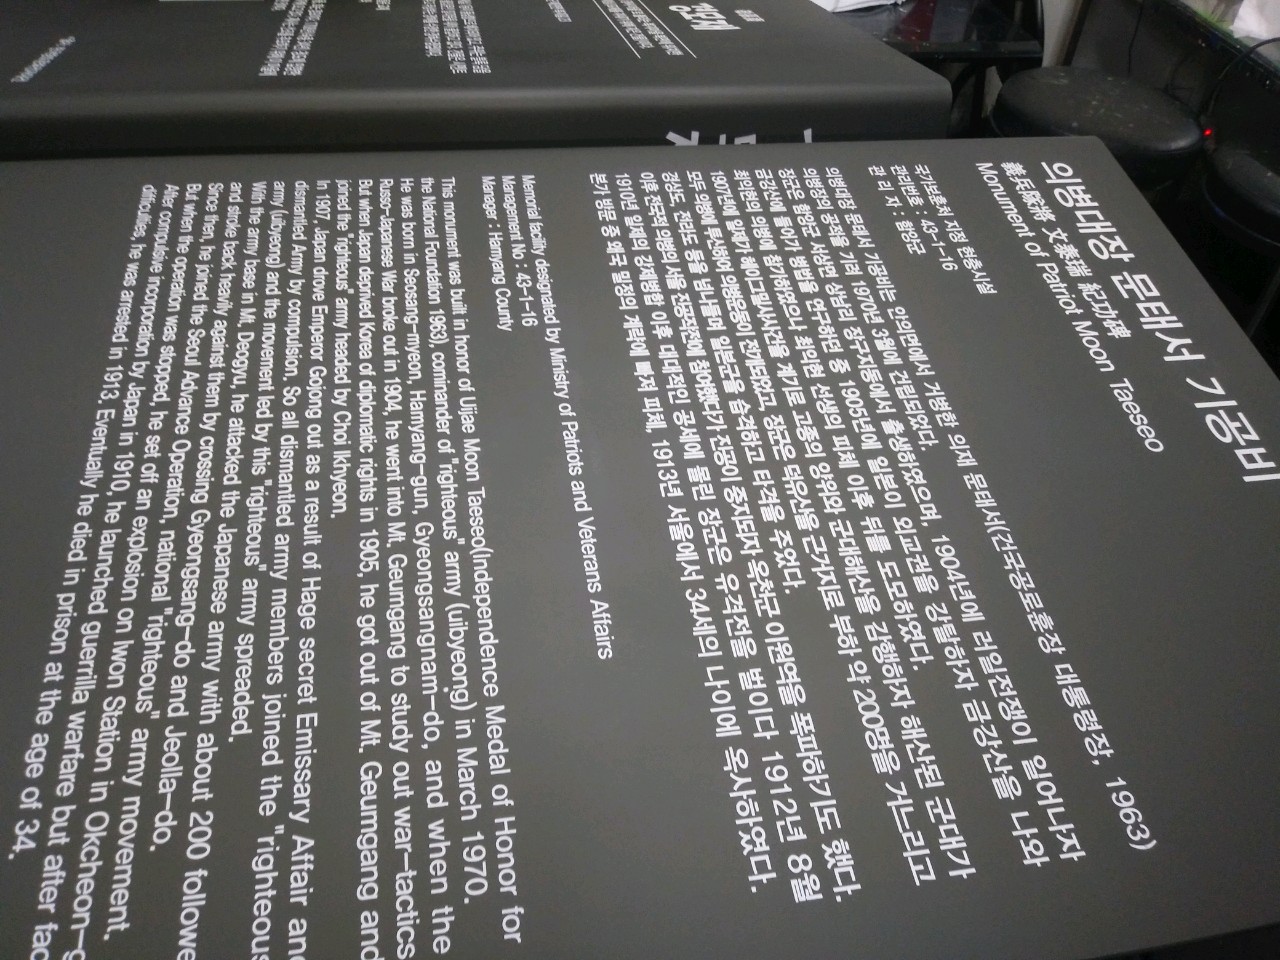 의병대장 문태서 기공비
義兵隊將 文泰瑞 紀功碑
Monument of Patriot Moon Taeseo
국가보훈처 지정 현충시설
관리번호 : 43-1-16
관 리 자 : 함양군
의병대장 문태서 기공비는 안의면에서 거병한 의재 문태서(건국공로훈장 대통령장, 1963)
의병장의 공적을 기려 1970년 3월에 건립되었다.
장군은 함양군 서상면 상남리 장구지동에서 출생하였으며, 1904년에 러일전쟁이 일어나자
금강산에 들어가 병법을 연구하던 중 1905년에 일본이 외교권을 강탈하자 금강산을 나와
최익현의 의병에 참가하였으나 최익현 선생의 피체 이후 뒤를 도모하였다.
1907년에 일제가 헤이그밀사사건을 계기로 고종의 양위와 군대해산을 감행하자 해산된 군대가
모두 의병에 투신하여 의병운동이 전개되었고, 장군은 덕유산을 근거지로 부하 약 200명을 거느리고
경상도, 전라도 등을 넘나들며 일본군을 습격하고 타격을 주었다.
이후 전국적 의병의 서울 진공작전에 참여했다가 진공이 중지되자 옥천군 이원역을 폭파하기도 했다.
1910년 일제의 강제병합 이후 대대적인 공세에 몰린 장군은 유격전을 벌이다 1912년 8월
본가 방문 중 왜국 밀정의 계략에 빠져 피체, 1913년 서울에서 34세의 나이에 옥사하였다.
Memorial facility designated by Ministry of Patriots and Veterans Affairs
Management No : 43-1-16
Manager : Hamyang County
This monument was built in honor of Uijae Moon Taeseo(Independence Medal of Honor for
the National Foundation 1963), cominander of "righteous" army (uibyeong) in March 1970.
He was born in Seosang-myeon, Hamyang-gun, Gyeongsangnam-do, and when the
Russo-Japanese War broke out in 1904, he went into Mt. Geumgang to study out war-tactics
But when Japan deprived Korea of diplomatic rights in 1905, he got out of Mt. Geumgang and
joined the "righteous" army headed by Choi Ikhyeon.
In 1907, Japan drove Emperor Gojong out as a result of Hage secret Emissary Affair and
dismantled Army by compulsion. So all dismantled army members joined the "righteous
army (uibyeong) and the movement led by this "righteous" army spreaded.
With the army base in Mt. Deogyu, he attacked the Japanese army with about 200 followe
and stroke back heavily against them by crossing Gyeongsang-do and Jeolla-do.
Since then, he joined the Seoul Advance Operation, national "righteous" army movement.
But when the operation was stopped, he set off an explosion on Iwon Station in Okcheon-g
After compulsive incorporation by Japan in 1910, he launched guerrilla warfare but after fac
difficulties, he was arrested in 1913. Eventually he died in prison at the age of 34.